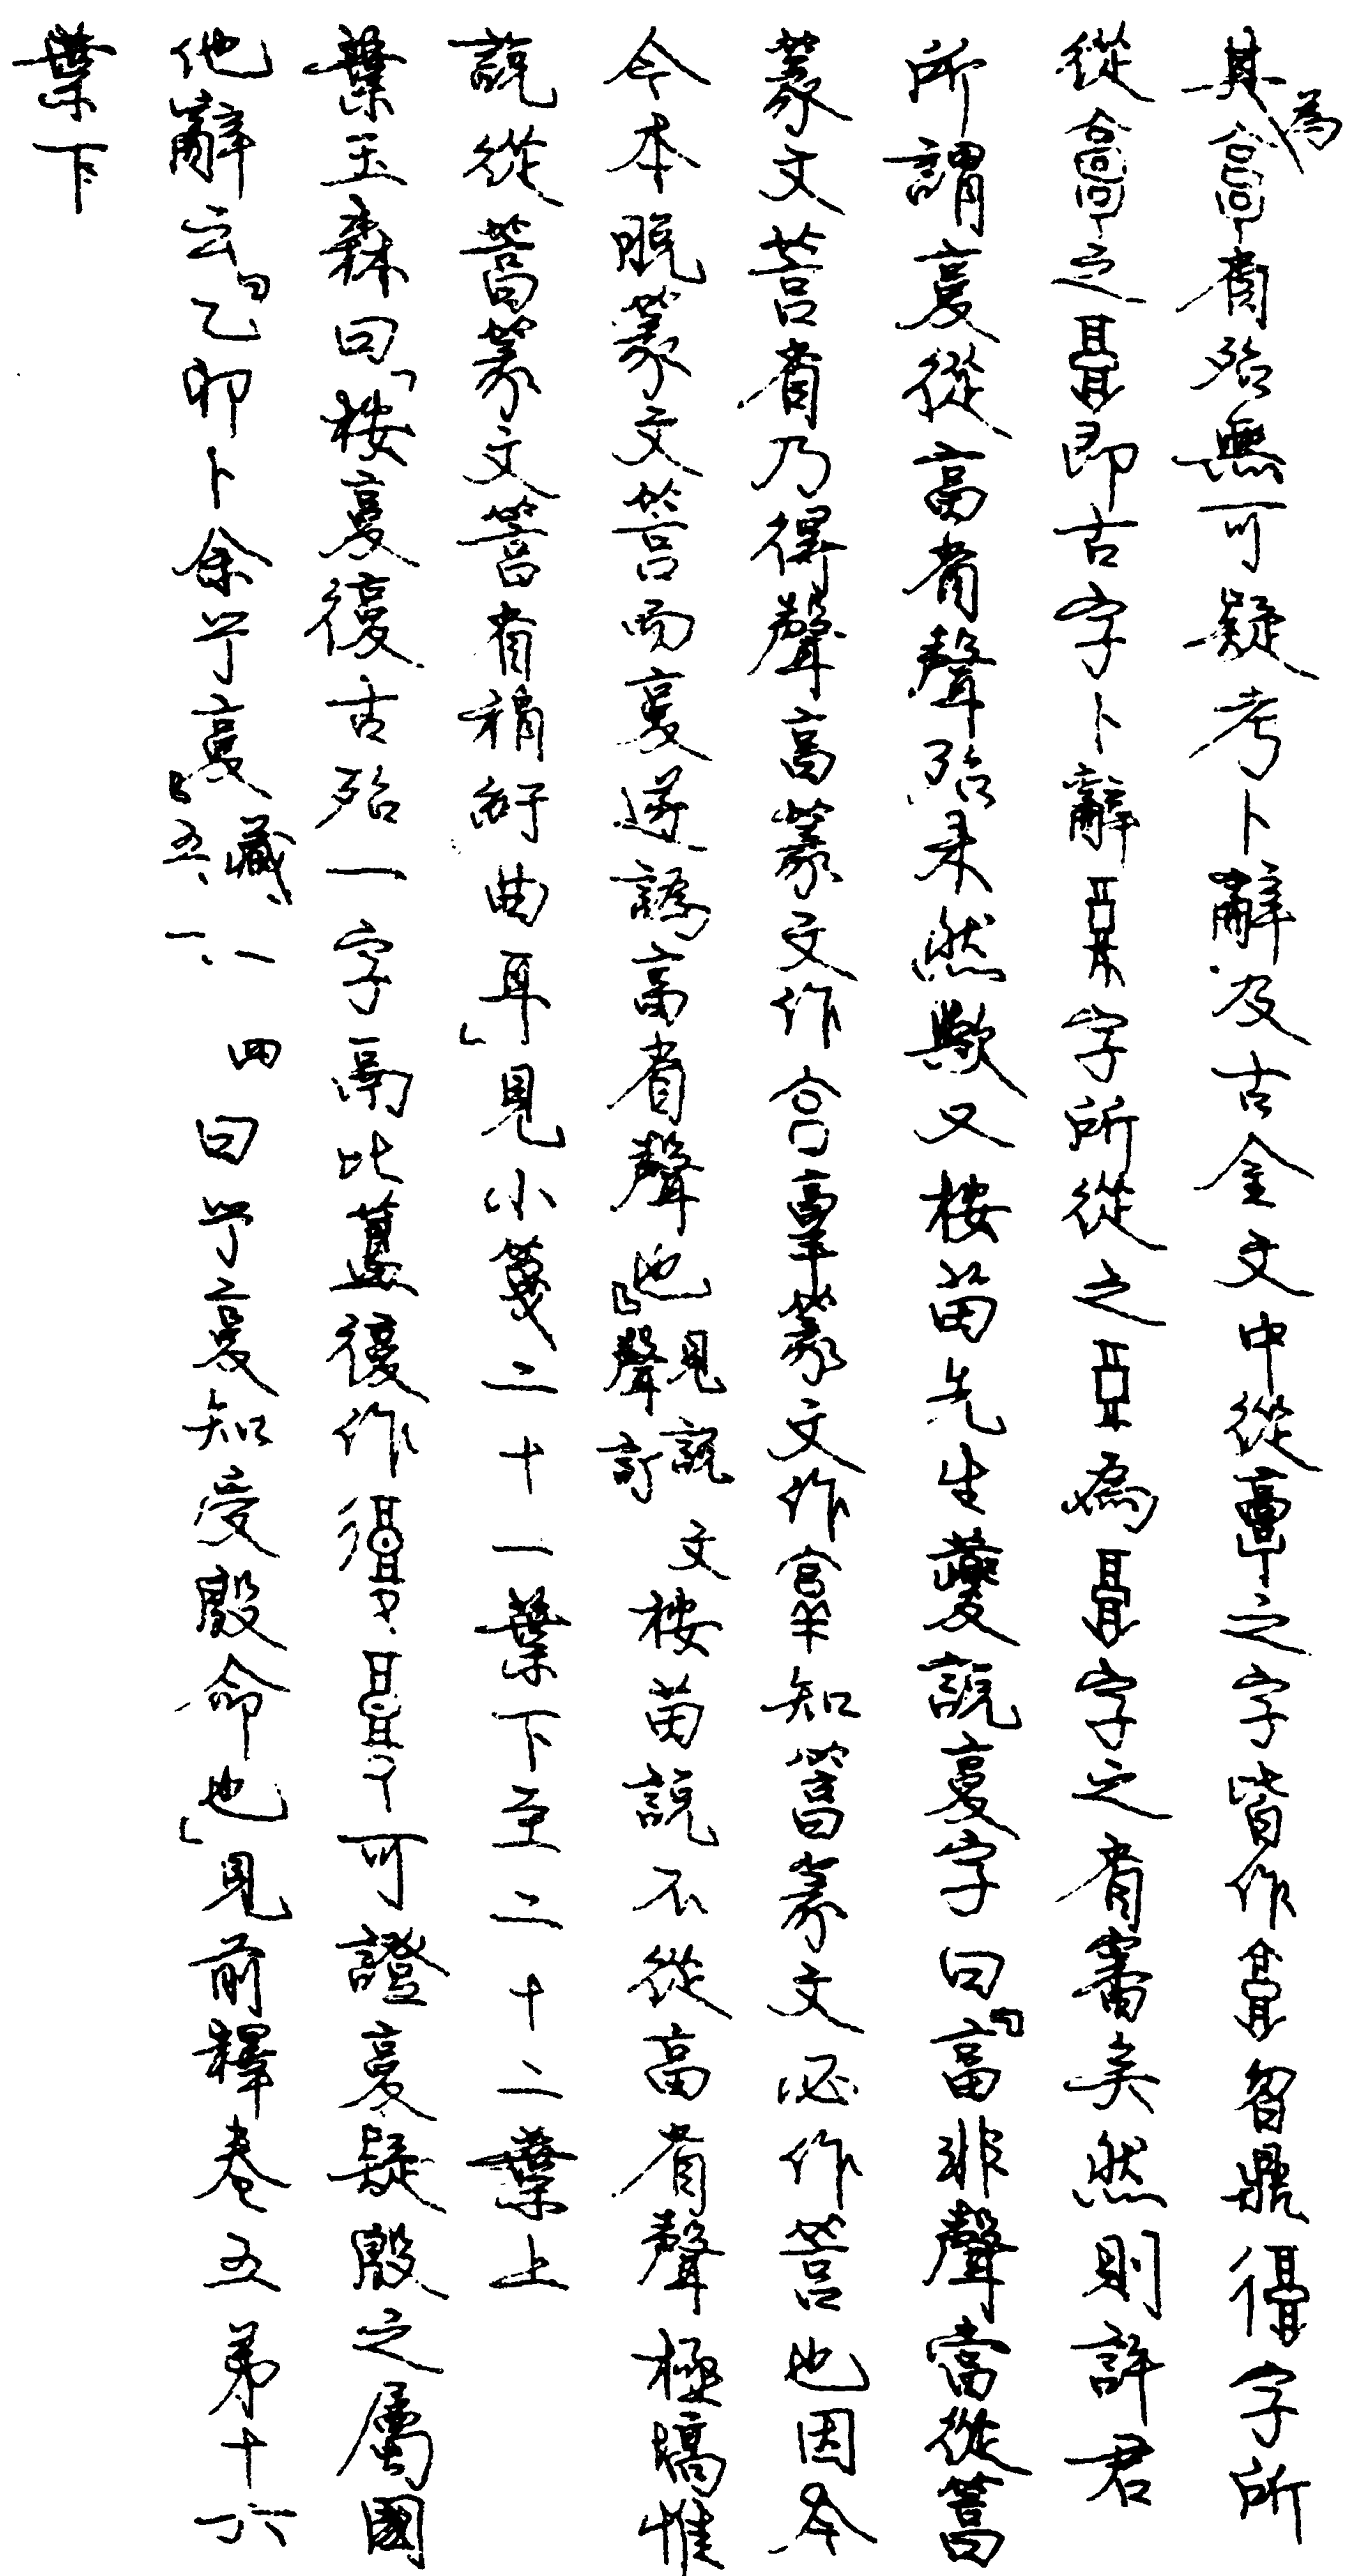 其為𩫖省殆無可疑考卜辭及古金文中從𩫖之字皆作𩫏曶鼎𢕔字所
從𩫖之𩫏即古字卜辭字所從之為𩫏字之省審矣然則許君
所謂㚆從畐省聲殆未然歟又桉苗先生夔說㚆字曰『畐非聲當從䈞
篆文䇾省乃得聲畐篆文作𩫖篆文作知䈞篆文必作䇾也因今
今本脫篆文䇾而㚆遂譌畐省聲也』見說文聲訂桉苗說不從畐省聲極塙惟
說從䈞篆文䇾省稍紆曲耳」見小箋二十一葉下至二十二葉上
葉玉森曰「桉㚆復古殆一字鬲比簋復作可證㚆疑殷之屬國
他辭云『乙卯卜余乎㚆』藏、五、一、八四曰乎㚆知受殷命也」見前釋卷五弟十六
葉下